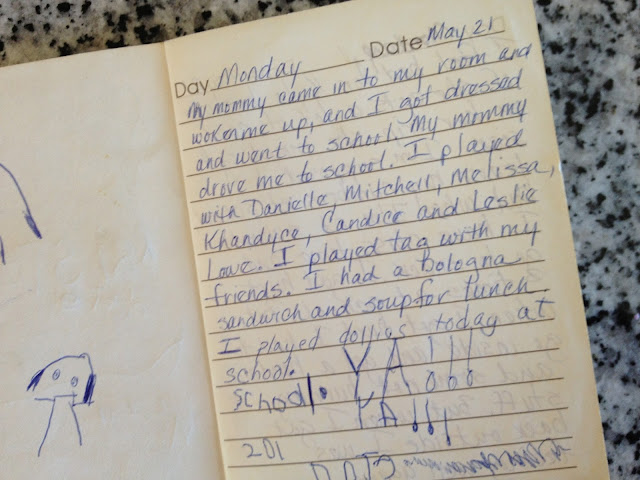 Day Monday Date May 21
My mommy came in to my room and
woken me up, and I got dressed
and went to school. My mommy
drove me to school. I played
with Danielle, Mitchell, Melissa,
Khandyce, Candice and Leslie
Love. I played tag with my
friends. I had a bologna
sandwich and soup for lunch.
I played dollies today at
school. YA!!!
school. YA!
YA!!!
201